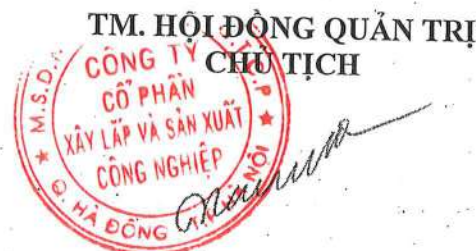 TM. HỘI ĐỒNG QUẢN TRỊ
CHỦ TỊCH
CÔNG TY
CỔ PHẦN
XÂY LẮP VÀ SẢN XUẤT
CÔNG NGHIỆP
M.S.D.
C.T.C.P
Q. HÀ ĐÔNG
HÀ NỘI